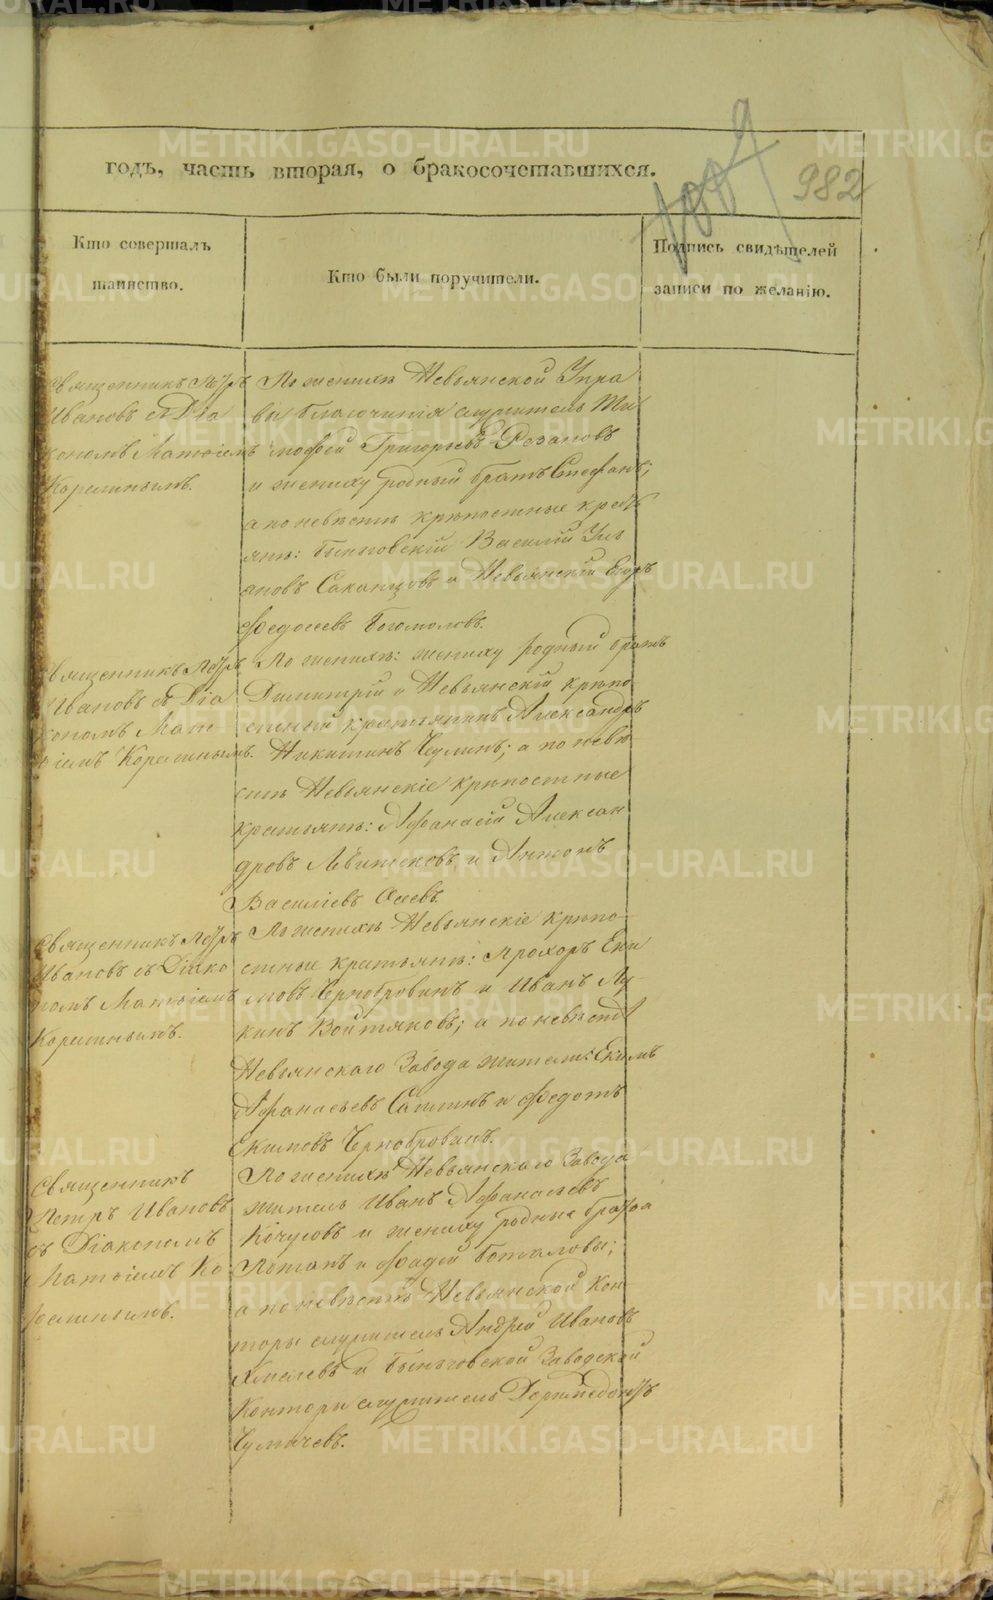 1009
982
годъ, часть вторая, о бракосочетавшихся.
Кто совершалъ
таинство.
Кто были поручители.
Подпись свидѣтелей
записи по желанію.
Священникъ Петръ
Ивановъ съ Діа
кономъ Матѳіемъ
Корелинымъ.
По женихѣ Невьянской Упра
вы благочинія служитель Ти
мофей Григорьевъ Рѣзановъ
и жениху родный братъ Стефанъ;
а по невѣстѣ крѣпостные кресть
яне: Быньговскій Василій Уль
яновъ Саканцовъ и Невьянскій Егоръ
Федосеевъ Богомоловъ.
Священникъ Петръ
Ивановъ съ Діа
кономъ Мат
ѳіемъ Корелинымъ.
По женихѣ: жениху родный братъ
Димитрій и Невьянскій крѣпо
стный крестьянинъ Александръ
Никитинъ Чулинъ; а по невѣ
стѣ Невьянскіе крѣпостные
крестьяне: Афанасій Алексан
дровъ и Антонъ
Василіевъ
Священникъ Петръ
Ивановъ съ Діако
номъ Матѳіемъ
Корелинымъ.
По женихѣ Невьянскіе крѣпо-
стные крестьяне: Прохоръ Еки
мовъ Чернобровинъ и Иванъ Лу
кинъ Войтяковъ; а по невѣстѣ
Невьянскаго Завода жители: Екимъ
Афанасьевъ Сатинъ и Федотъ
Екимовъ Чернобровинъ.
Священникъ
Петръ Ивановъ
съ Діакономъ
Матѳіемъ Ко
релинымъ.
По женихѣ Невьянскаго Завода
житель Иванъ Афанасьевъ
и жениху родные братья
Потапъ и Фадей Боталовы;
а по невѣстѣ Невьянской Кон
торы служитель Андрей Ивановъ
Хмелевъ и Быньговской Заводской
Конторы служитель
Чумичевъ.
METRIKI.GASO-URAL.RU